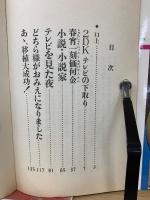 目次
口上
2DK テレビの下取り
春宵一刻価何金
小説・小説家
テレビを見た夜
どちら様がおみえになりました
あゝ、移植大成功!
7
37
65
91
117
125